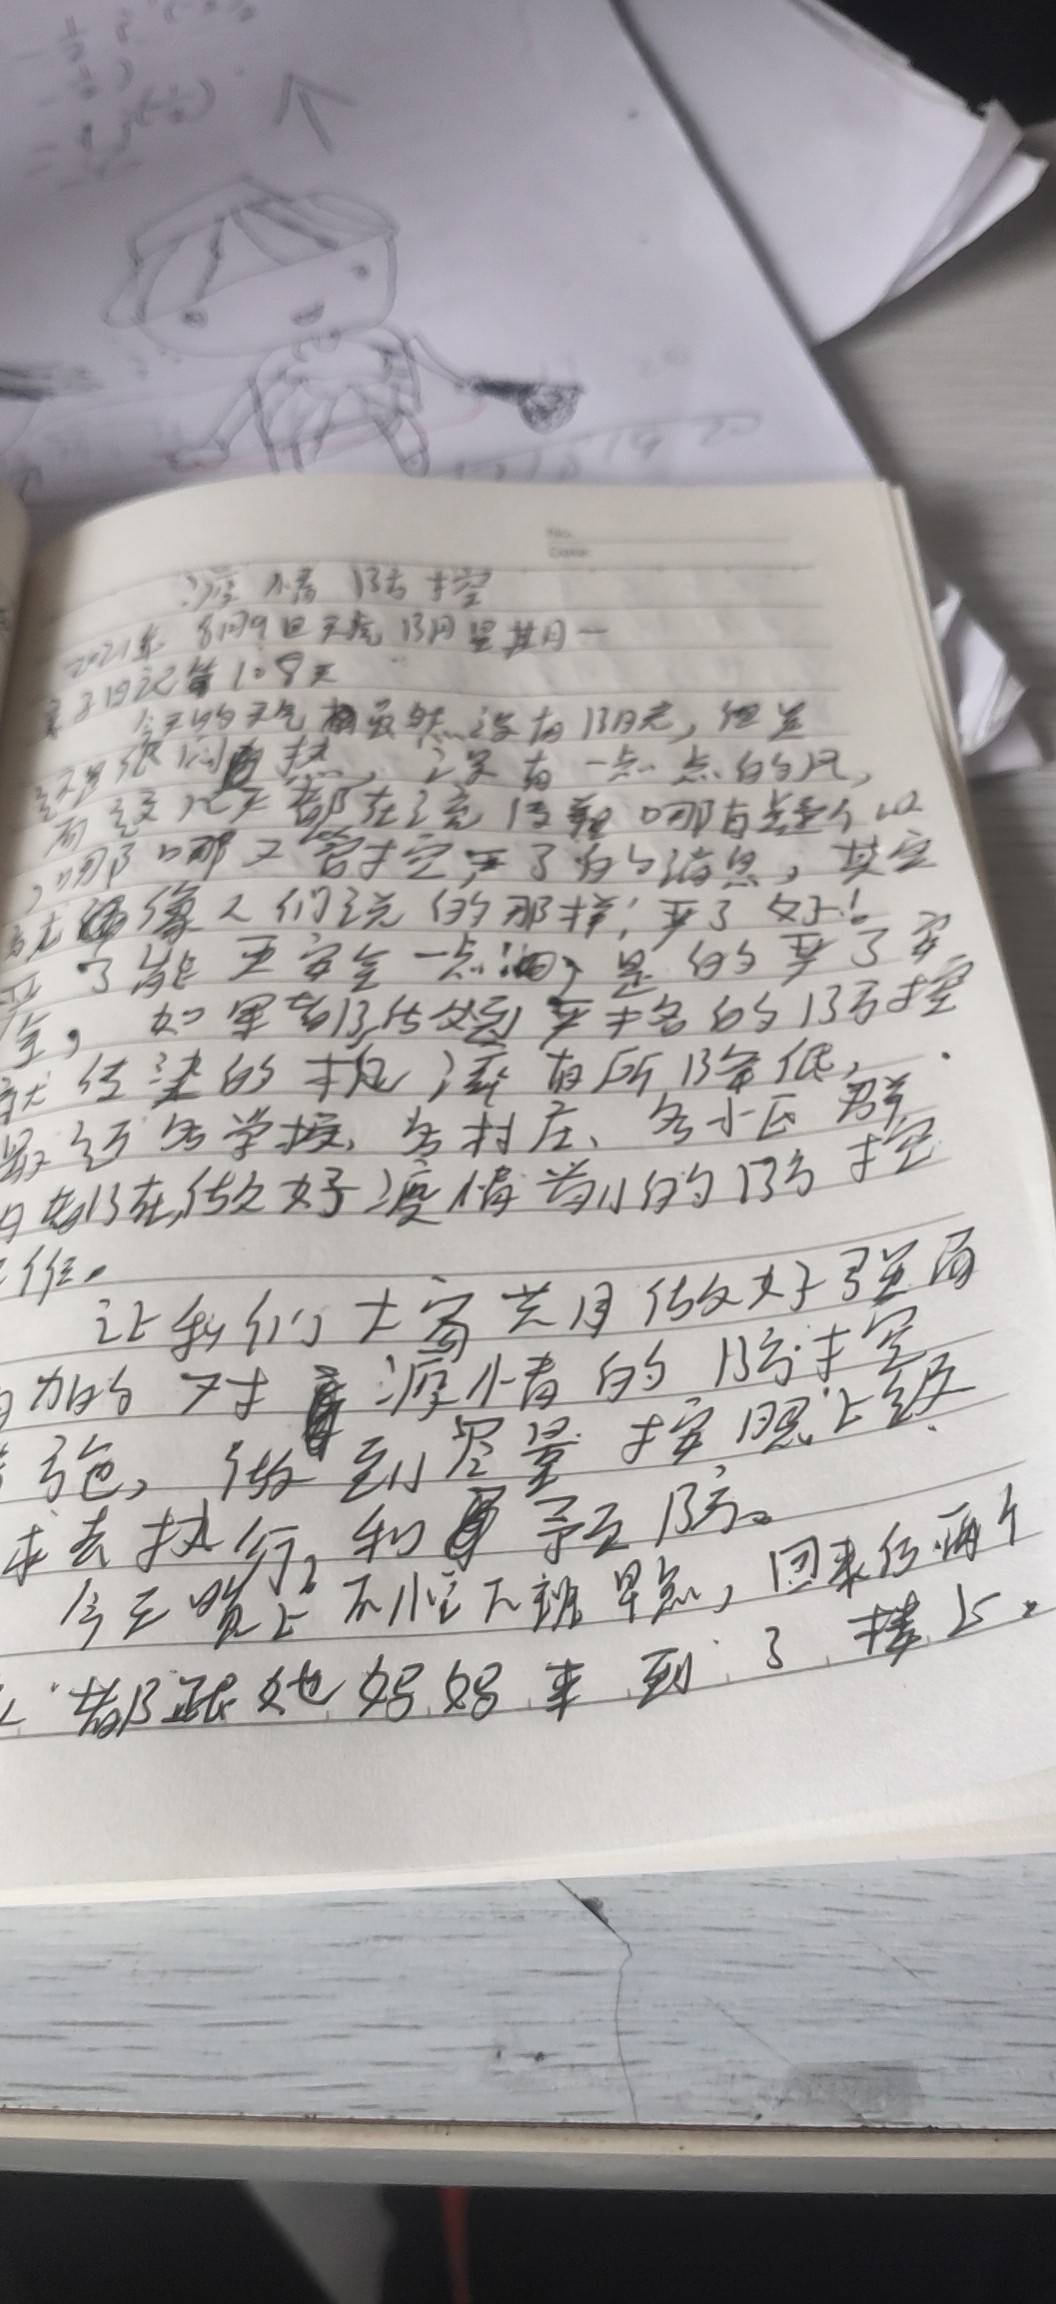 No.
Date
疫情防控
2021年 8月9日 天气 阴 星期一
亲子日记第108天
今天的天气虽然没有阴光，但是
还是很闷热，没有一点点的风，
而这几天都在流传着哪有
，哪哪又管控严了的消息，其实
就像人们说的那样，严了好！
严了能更安全一点，是的严了安
全，如果都做到严格的防控
就传染的机率有所降低，
最近各学校、各村庄、各小区群
内都在做好疫情当儿的防控
工作。
让我们大家共同做好强而
有力的对疫情的防控
措施，做到尽量按照上级
求去执行，和预防。
今天晚上不忙下班早点，回来后两个
都跟她妈妈来到了楼上。